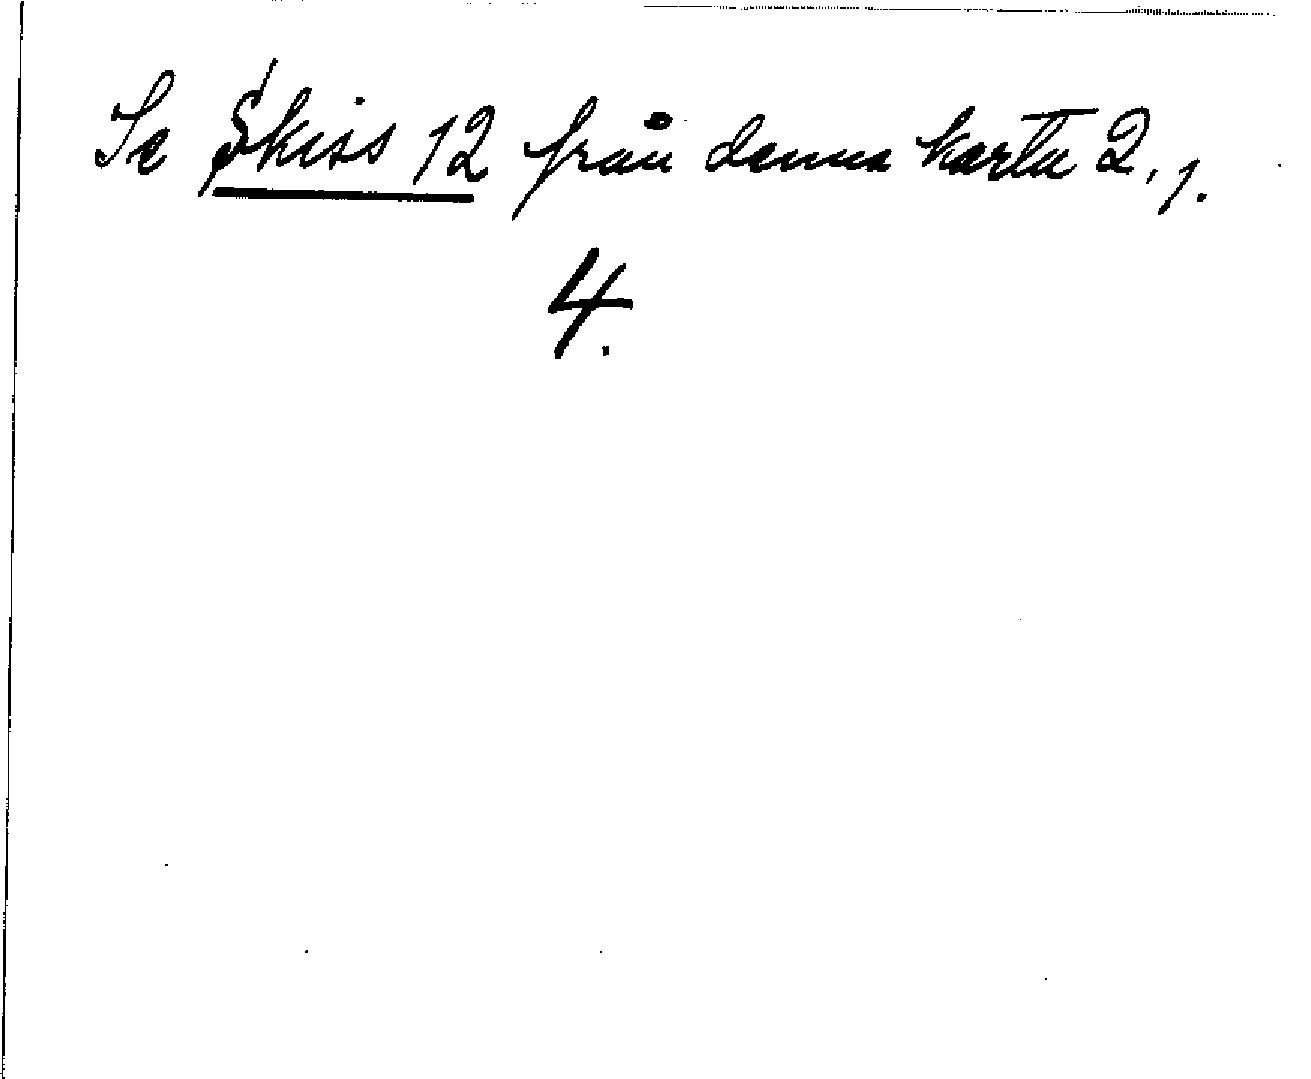 Se Skiss 12 från denna karta 2, 1.
4.